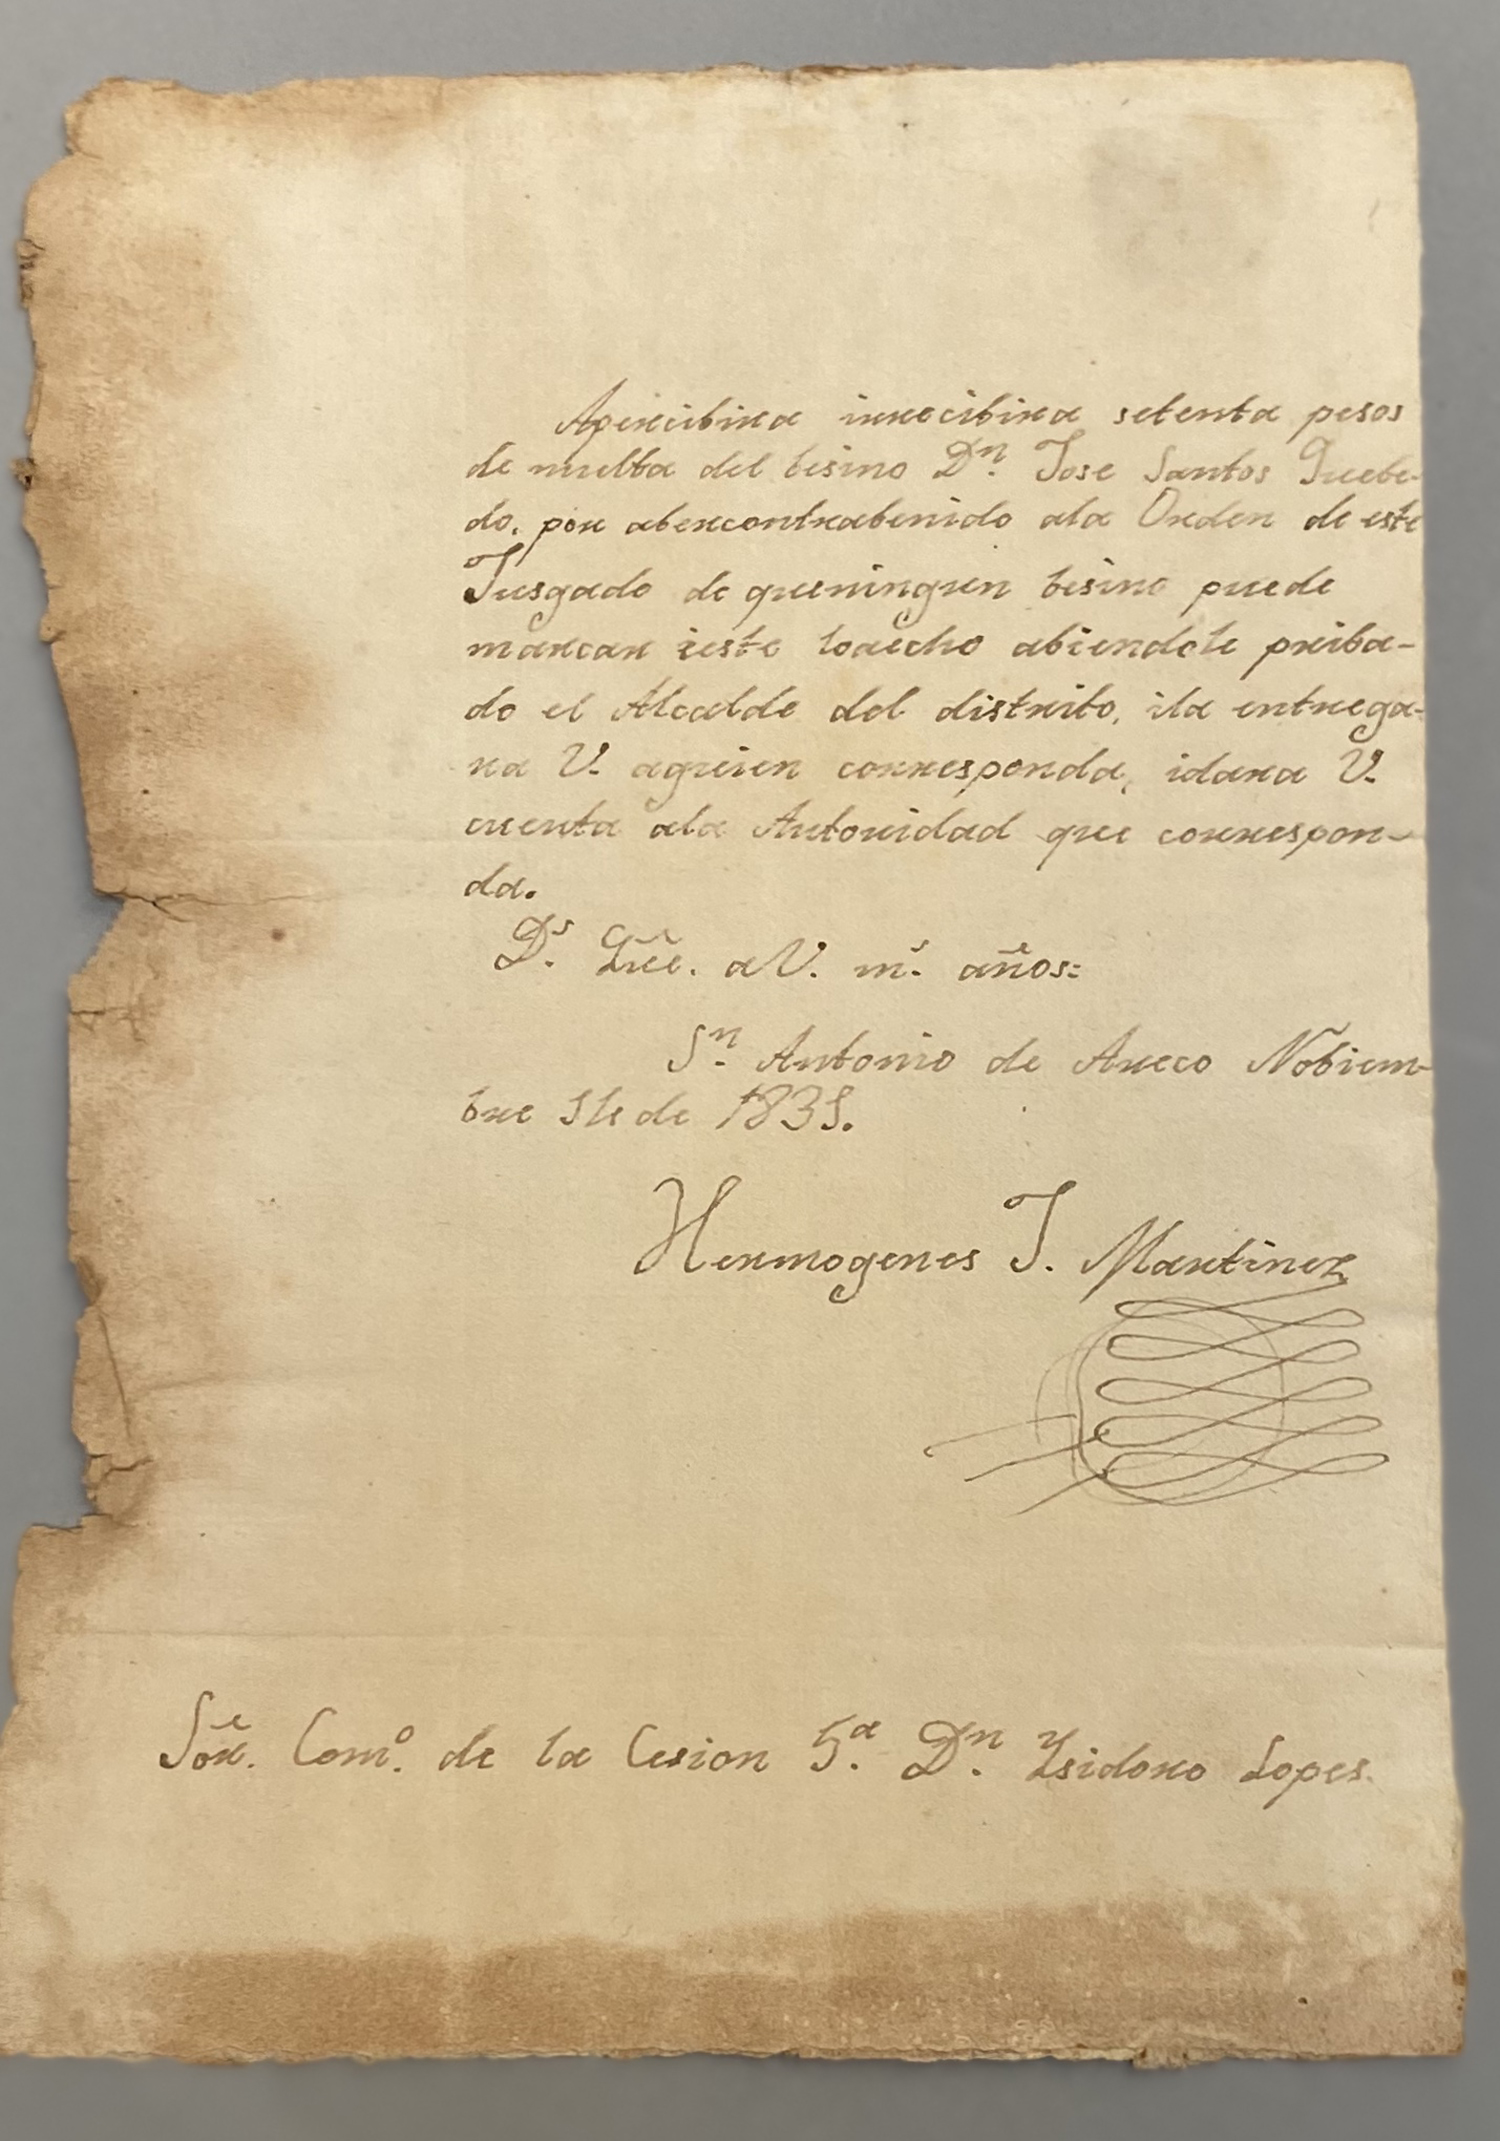 Apercibira irrecibira setenta pesos
de multa del besino Dn. Jose Santos Quebe-
do. por abercontrabenido ala Orden de este
Jusgado de queningun besino puede
marcar ieste loaecho abiendole priba-
do el Alcalde del distrito, ila entrega-
ra V. aquien corresponda, idara V.
cuenta ala Autoridad que correspon-
da.
Ds. Gue. a V. ms. años:
Sn. Antonio de Areco Nobiem-
bre de 1835.
Hermogenes J. Martinez
Sor. Como. de la Cesion 5a. Dn. Ysidoro Lopes.